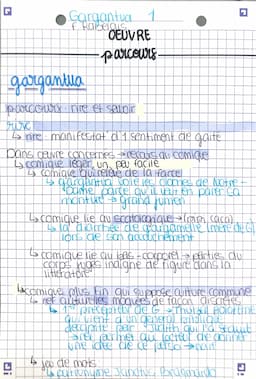 Gargantua 1
F. Rabelais
OEUVRE
parcours
gargantua
parcours : rire et savoir
rire
↳ rire : manifestat° d'1 sentiment de gaité
Dans oeuvre concernés → recours au comique
↳ comique léger, un peu facile
↳ comique qui relève de la farce
↳ gargantua vole les cloches de Notre-
Dame parce qu'il veut en parer sa
monture → grand jument
↳ comique lié au scatologique → (pipi, caca)
↳ la diarrhée de gargamelle (mère de G)
lors de son accouchement
↳ comique lié au bas-corporel → parties du
corps jugés indigne de figurer dans la
littérature
↳ comique plus fin qui suppose culture commune
↳ ref culturelles moquées de façon discrètes
↳ 1er précepteur de G → Thubal Holoferne
qui vient d'un général biblique
décapité par Judith qui l'a séduit
→ ref permet au lecteur de donner
une idée de ce perso → noir
↳ jeu de mots
↳ patronyme Janotus Bragmardo